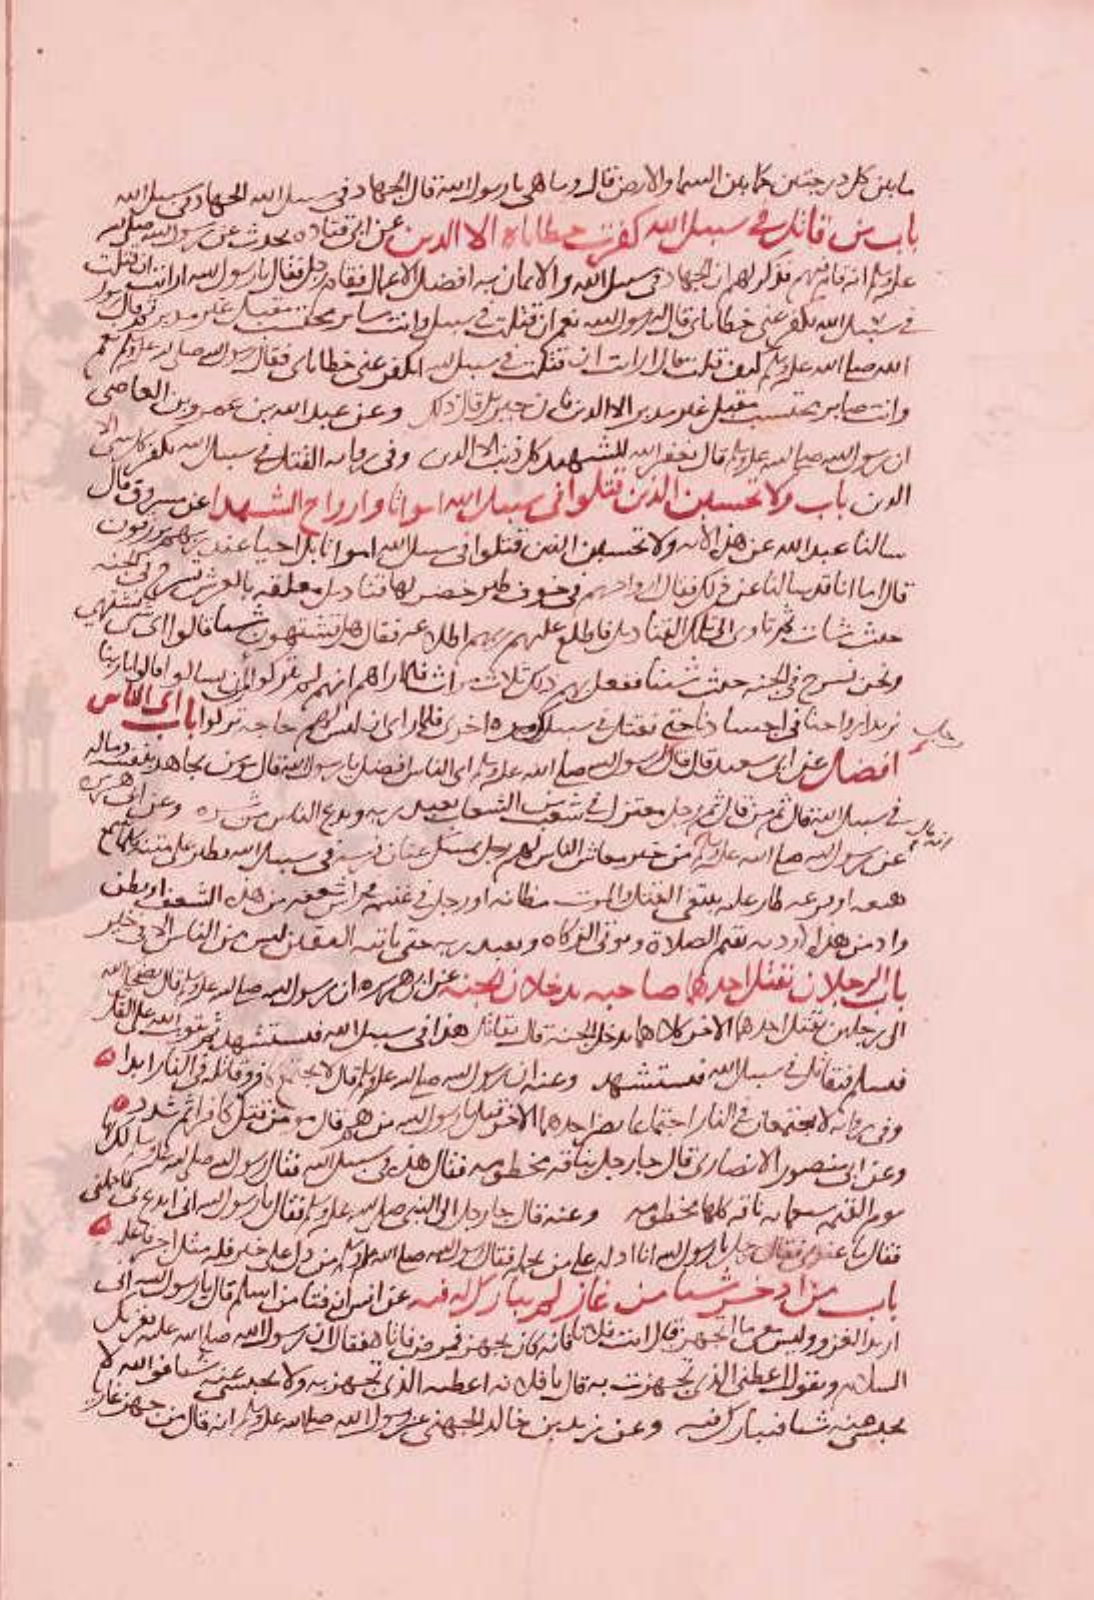 ما بين كل درجتين كما بين السما والارض قال وما هى يا رسول الله قال الجهاد فى سبيل الله الجهاد فى سبيل الله
باب من قاتل فى سبيل الله كفرت خطاياه الا الدين عن ابى قتاده يحدث عن رسول الله صلى الله
عليه وسلم انه قام فيهم فذكر لهم ان الجهاد فى سبيل الله والايمان به افضل الاعمال فقام رجل فقال يا رسول الله ارايت ان قتلت
فى سبيل الله تكفر عنى خطاياى قال له رسول الله نعم ان قتلت فى سبيل وانت صابر محتسب مقبل غير مدبر ثم قال رسول
الله صلى الله عليه وسلم كيف قلت قال ارايت ان قتلت فى سبيل الله اتكفر عنى خطاياى فقال رسول الله صلى الله عليه وسلم نعم
وانت صابر محتسب مقبل غير مدبر الا الدين فان جبريل قال ذلك وعن عبد الله بن عمرو بن العاصى
ان رسول الله صلى الله عليه وسلم قال يغفر الله للشهيد كل ذنب الا الدين وفى روايه القتل فى سبيل الله يكفر كل شى الا
الدين باب ولا تحسبن الذين قتلوا فى سبيل الله امواتا وارواح الشهدا عن مسروق قال
سالنا عبد الله عن هذه الآيه ولا تحسبن الذين قتلوا فى سبيل الله امواتا بل احيا عند ربهم يرزقون
قال اما انا قد سالنا عن ذلك فقال ارواحهم فى جوف طير خضر لها قناديل معلقه بالعرش تسرح فى الجنه
حيث شات ثم تاوى الى تلك القناديل فاطلع عليهم ربهم اطلاعه فقال هل تشتهون شيا قالوا اى شى نشتهى
ونحن نسرح فى الجنه حيث شينا ففعل بهم ذلك ثلاث مرات فلما راوا انهم لم يتركوا من ان يسالوا قالوا يا ربنا
نريد ارواحنا فى اجسادنا حتى نقتل فى سبيلك مره اخرى فلما راى ان ليس لهم حاجه تركوا باب اى الناس
افضل عن ابى سعيد قال قال رسول الله صلى الله عليه وسلم اى الناس افضل يا رسول الله قال مومن يجاهد بنفسه وماله
فى سبيل الله قال ثم من قال ثم رجل معتزل فى شعب من الشعاب يعبد ربه ويدع الناس من شره وعن ابى هريره
عن رسول الله صلى الله عليه وسلم من خير معاش الناس لهم رجل ممسك عنان فرسه فى سبيل الله يطير على متنه كلما سمع
هيعه او فزعه طار عليه يبتغى القتل والموت مظانه او رجل فى غنيمه فى راس شعفه من هذه الشعف او بطن
واد من هذه الاوديه يقيم الصلاة ويوتى الزكاه ويعبد ربه حتى ياتيه اليقين ليس من الناس الا فى خير
باب الرجلان يقتل احدهما صاحبه يدخلان الجنه عن ابى هريره ان رسول الله صلى الله عليه وسلم قال يضحك الله
الى رجلين يقتل احدهما الاخر كلاهما يدخل الجنة قال يقاتل هذا فى سبيل الله فيستشهد ثم يتوب الله على القاتل
فيسلم فيقاتل فى سبيل الله فيستشهد وعنه ان رسول الله صلى الله عليه وسلم قال لا يجتمع كافر وقاتله فى النار ابدا
وفى روايه لا يجتمعان فى النار اجتماعا يضر احدهما الاخر قيل يا رسول الله من هم قال مومن قتل كافرا ثم سدد
وعن ابى منصور الانصارى قال جا رجل بناقه مخطومه فقال هذه فى سبيل الله فقال رسول الله صلى الله عليه وسلم لك بها
يوم القيمه سبعمايه ناقه كلها مخطومه وعنه قال جا رجل الى النبى صلى الله عليه وسلم فقال يا رسول الله انى ابدع بى فاحملنى
فقال ما عندى فقال رجل يا رسول الله انا ادله على من يحمله فقال رسول الله صلى الله عليه وسلم من دل على خير فله مثل اجر فاعله
باب من ادخر شيا من غاز لم يبارك له فيه عن انس ان فتا من اسلم قال يا رسول الله انى
اريد الغزو وليس معى ما اتجهز قال ائت فلانا فانه كان يجهز فمرض فاتاه فقال ان رسول الله صلى الله عليه وسلم يقريك
السلام ويقول اعطنى الذى تجهزت به قال يا فلانه اعطيه الذى تجهزت به ولا تحبسى عنه شيا فوالله لا
تحبسى منه شيا فيبارك فيه وعن زيد بن خالد الجهنى عن رسول الله صلى الله عليه وسلم انه قال من جهز غازيا